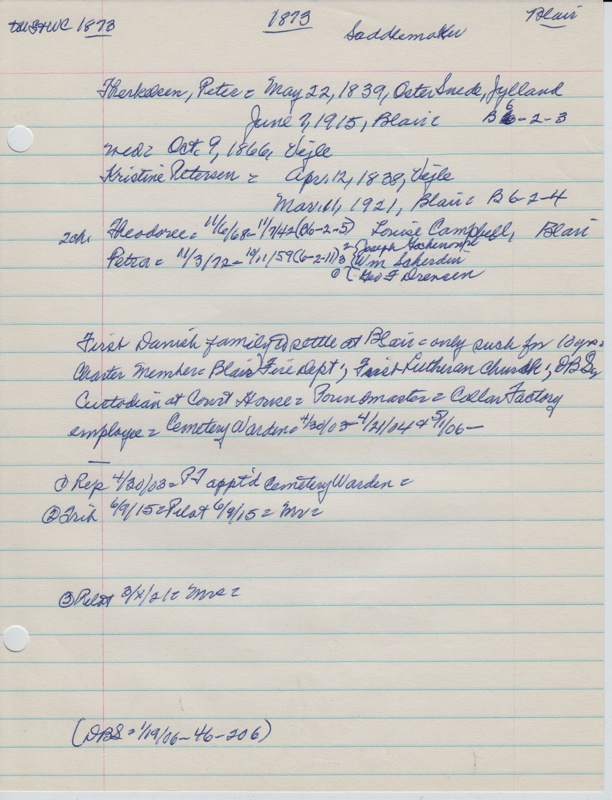 WC 1873 1873 Blair
Saddlemaker
Therkelsen, Peter = May 22, 1839, Oster Snede, Jylland
June 7, 1915, Blair = B 6-2-3
med = Oct. 9, 1866, Vejle
Kristine Petersen = Apr. 12, 1838, Vejle
Mar. 11, 1921, Blair = B 6-2-4
2ch. Theodore = 11/6/68 = 11/7/42 (B6-2-5) Louise Campbell, Blair
Petra = 11/3/72 = 10/11/59 (6-2-11) 3 { Joseph
Wm Scherdin
Geo F Sorensen
First Danish family to settle at Blair = only such for 10 yrs =
Charter Member = Blair Fire Dept; First Lutheran Church; DBS
Custodian at Court House = Poundmaster = Collar Factory
employee = Cemetery Warden = 4/30/03 - 4/21/04 & 5/1/06 -
① Rep 4/30/03 = PT appt'd Cemetery Warden =
② Trib 6/9/15 = Pilot 6/9/15 = Mr =
③ Pilot 3/x/21 = Mrs =
(DBS = 1/19/06 - 46 - 206)